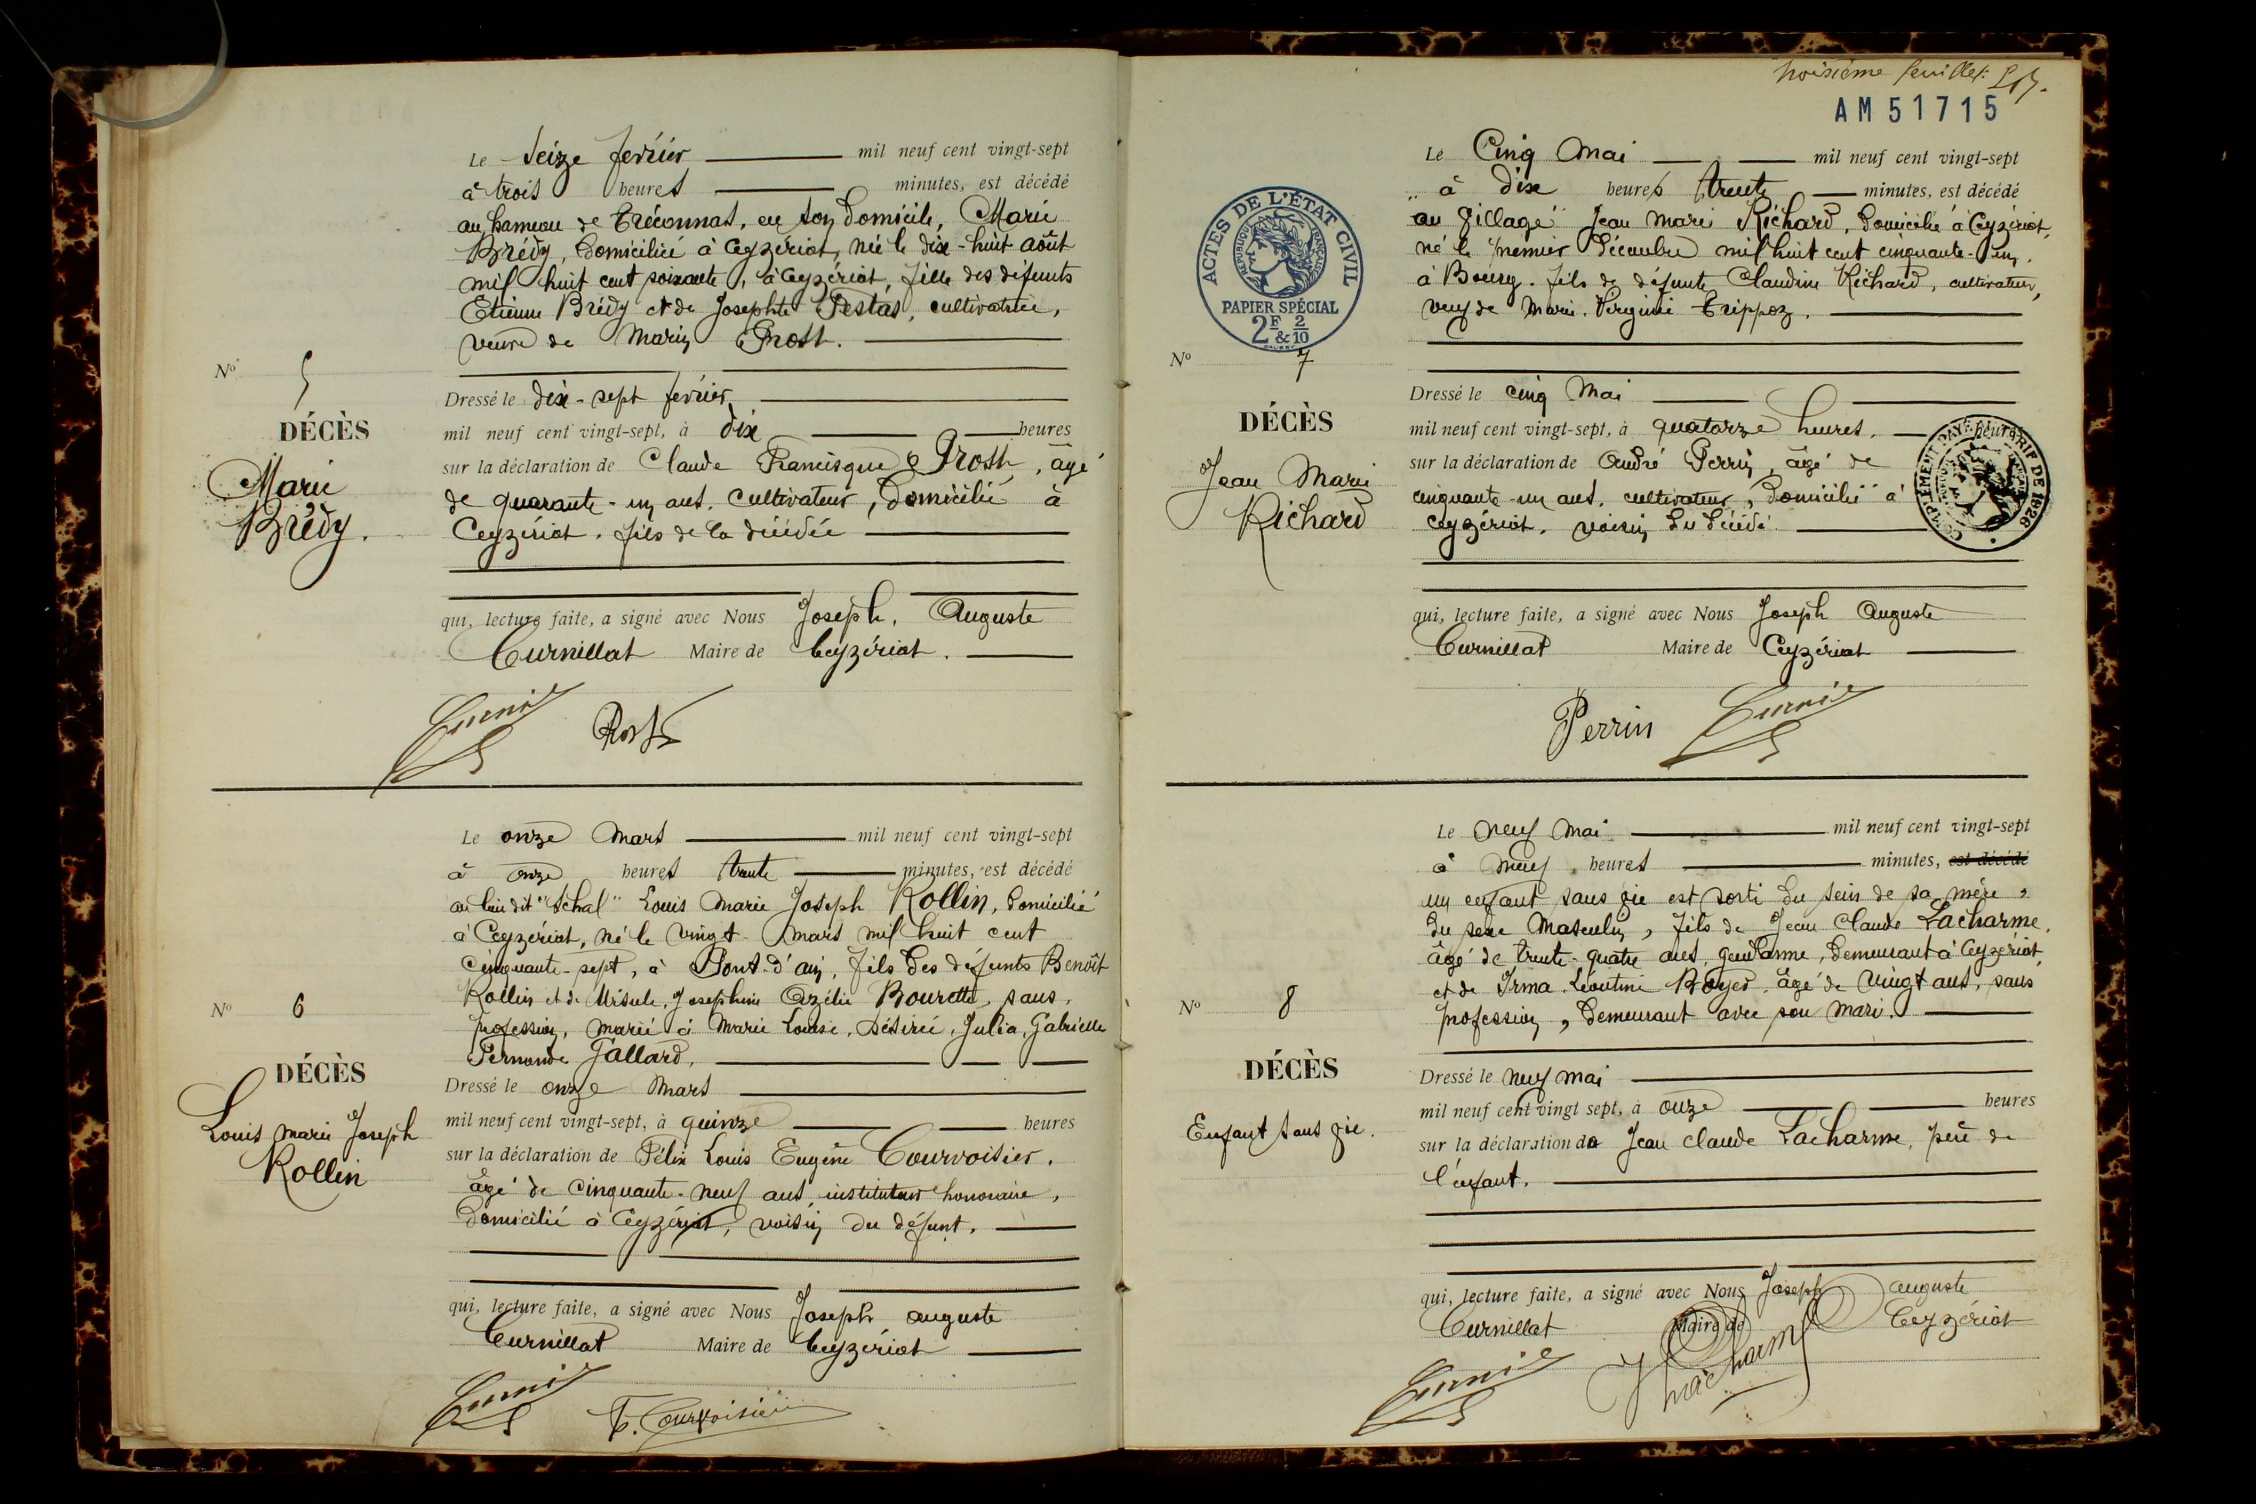 Le Seize février mil neuf cent vingt-sept
à trois heures minutes, est décédé
au hameau de Tréconnas, en son domicile, Marie
Brédy, domiciliée à Ceyzériat, née le dix-huit août
mil huit cent soixante, à Ceyzériat, fille des défunts
Etienne Brédy et de Josephte Pestas, cultivatrice,
veuve de Marin Prost.
No 5
DÉCÈS
Marie
Brédy.
Dressé le dix-sept février
mil neuf cent vingt-sept, à dix heures
sur la déclaration de Claude Francisque Prost, âgé
de quarante-un ans, cultivateur, domicilié à
Ceyzériat, fils de la décédée
qui, lecture faite, a signé avec Nous Joseph, Auguste
Curnillat Maire de Ceyzériat.
Prost
Le onze Mars mil neuf cent vingt-sept
à onze heures trente minutes, est décédé
au lieu dit "Schal" Louis Marie Joseph Rollin, domicilié
à Ceyzériat, né le vingt mars mil huit cent
cinquante-sept, à Pont-d'ain, fils des défunts Benoît
Rollin et de Ursule, Josephine Azélie Bourette, sans
profession, marié à Marie Louise, Désirée, Julia, Gabrielle
Fernande Gallard,
No 6
DÉCÈS
Louis Marie Joseph
Rollin
Dressé le onze Mars
mil neuf cent vingt-sept, à quinze heures
sur la déclaration de Félix Louis Eugène Courvoisier,
âgé de cinquante-neuf ans instituteur honoraire,
domicilié à Ceyzériat, voisin du défunt.
qui, lecture faite, a signé avec Nous Joseph auguste
Curnillat Maire de Ceyzériat
F. Courvoisier
troisième feuillet
AM 51715
ACTES DE L'ÉTAT CIVIL
RÉPUBLIQUE FRANÇAISE
PAPIER SPÉCIAL
2F & 2/10
Le Cinq Mai mil neuf cent vingt-sept
à dix heures trente minutes, est décédé
"au Village" Jean Marie Richard, domicilié à Ceyzériat,
né le premier décembre mil huit cent cinquante-un,
à Bourg, fils de défunte Claudine Richard, cultivateur,
veuf de Marie Virginie Trippoz.
No 7
DÉCÈS
Jean Marie
Richard
Dressé le cinq Mai
mil neuf cent vingt-sept, à quatorze heures. heures
sur la déclaration de André Perrin, âgé de
cinquante-un ans, cultivateur, domicilié à
Ceyzériat, voisin du décédé
COMPLÉMENT PAYÉ TARIF DE 1926
qui, lecture faite, a signé avec Nous Joseph Auguste
Curnillat Maire de Ceyzériat
Perrin
Le neuf mai mil neuf cent vingt-sept
à neuf heures minutes, est décédé
un enfant sans vie est sorti du sein de sa mère,
du sexe Masculin, fils de Jean Claude Lacharme,
âgé de trente-quatre ans, gendarme, demeurant à Ceyzériat,
et de Irma Léontine Boyer, âgé de vingt ans, sans
profession, demeurant avec son mari.
No 8
DÉCÈS
Enfant sans vie.
Dressé le neuf mai
mil neuf cent vingt sept, à onze heures
sur la déclaration de Jean Claude Lacharme, père de
l'enfant.
qui, lecture faite, a signé avec Nous Joseph auguste
Curnillat Maire de Ceyzériat
Lacharme